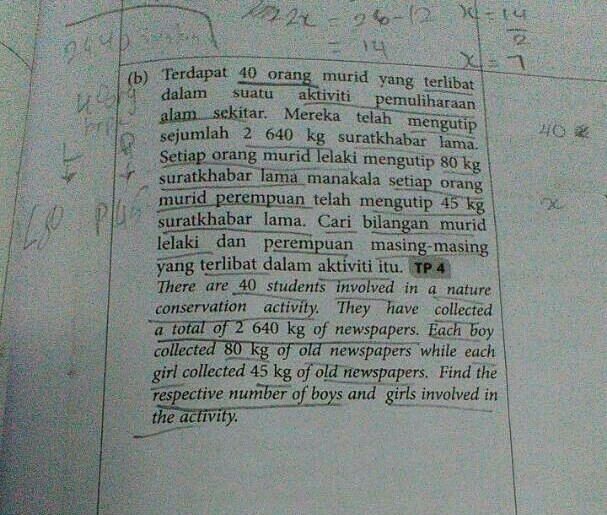 2x = 26-12
= 14
x = 14
2
x = 7
(b) Terdapat 40 orang murid yang terlibat
dalam suatu aktiviti pemuliharaan
alam sekitar. Mereka telah mengutip
sejumlah 2 640 kg suratkhabar lama.
Setiap orang murid lelaki mengutip 80 kg
suratkhabar lama manakala setiap orang
murid perempuan telah mengutip 45 kg
suratkhabar lama. Cari bilangan murid
lelaki dan perempuan masing-masing
yang terlibat dalam aktiviti itu. TP 4
There are 40 students involved in a nature
conservation activity. They have collected
a total of 2 640 kg of newspapers. Each boy
collected 80 kg of old newspapers while each
girl collected 45 kg of old newspapers. Find the
respective number of boys and girls involved in
the activity.
40
x